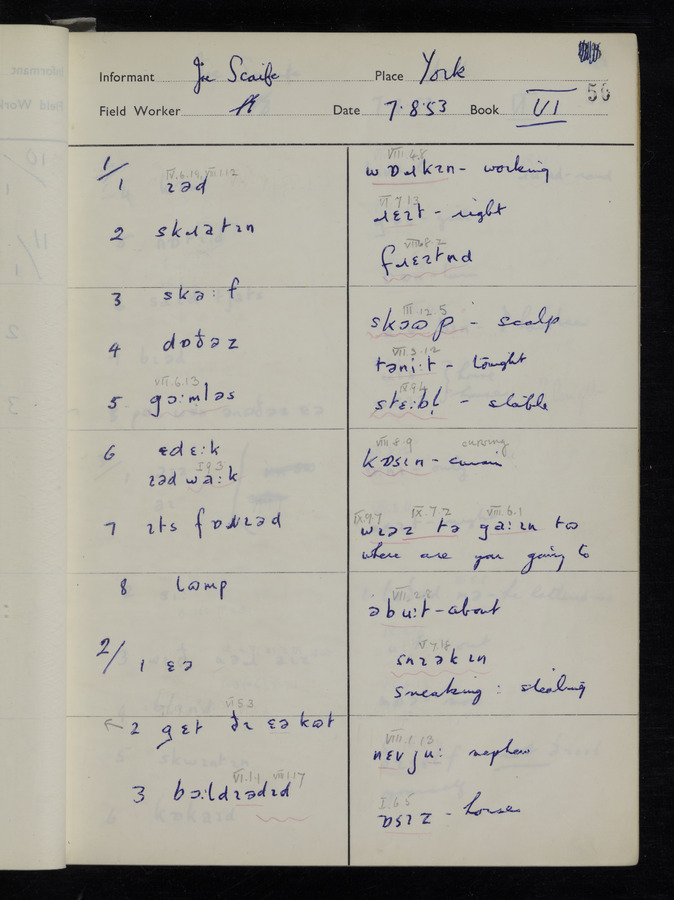 Informant Joe Scaife Place York
50
Field Worker Date 7.8.53 Book VI
1/
IV.6.14, VII.1.12
1 ɪəd
2 skɹatɪn
3 skəːf
4 dɒðəz
VII.6.13
5. gɔːmləs
6 ɛdɛːk
I.9.3
ɪəd waːk
7 ɪts fɒʊɪəd
8 lamp
2/ 1 ɛə
VI.5.3
2 gɛt ðɪ ɛə kʊt
VI.1.1 VII.1.17
3 bɔːldɪədɪd
VIII.4.8
wɒɹkɪn - working
VI.7.13
ɹɛɪt - right
VIII.8.2
fɹɛɪtnd
III.12.5
skɔʊp - scalp
VII.3.12
təniːt - tonight
IX.9.4
stɛːbl̩ - stable
VIII.8.9
kʊsɪn - cousin
IX.9.7 IX.7.2 VIII.6.1
wɪəz tə gaːɪn tʊ
where are you going to
VII.2.8
əbuːt - about
V.7.18
snɪəkɪn
sneaking : stealing
VIII.1.13
nɛvjuː nephew
I.6.5
ɒsɪz - horses